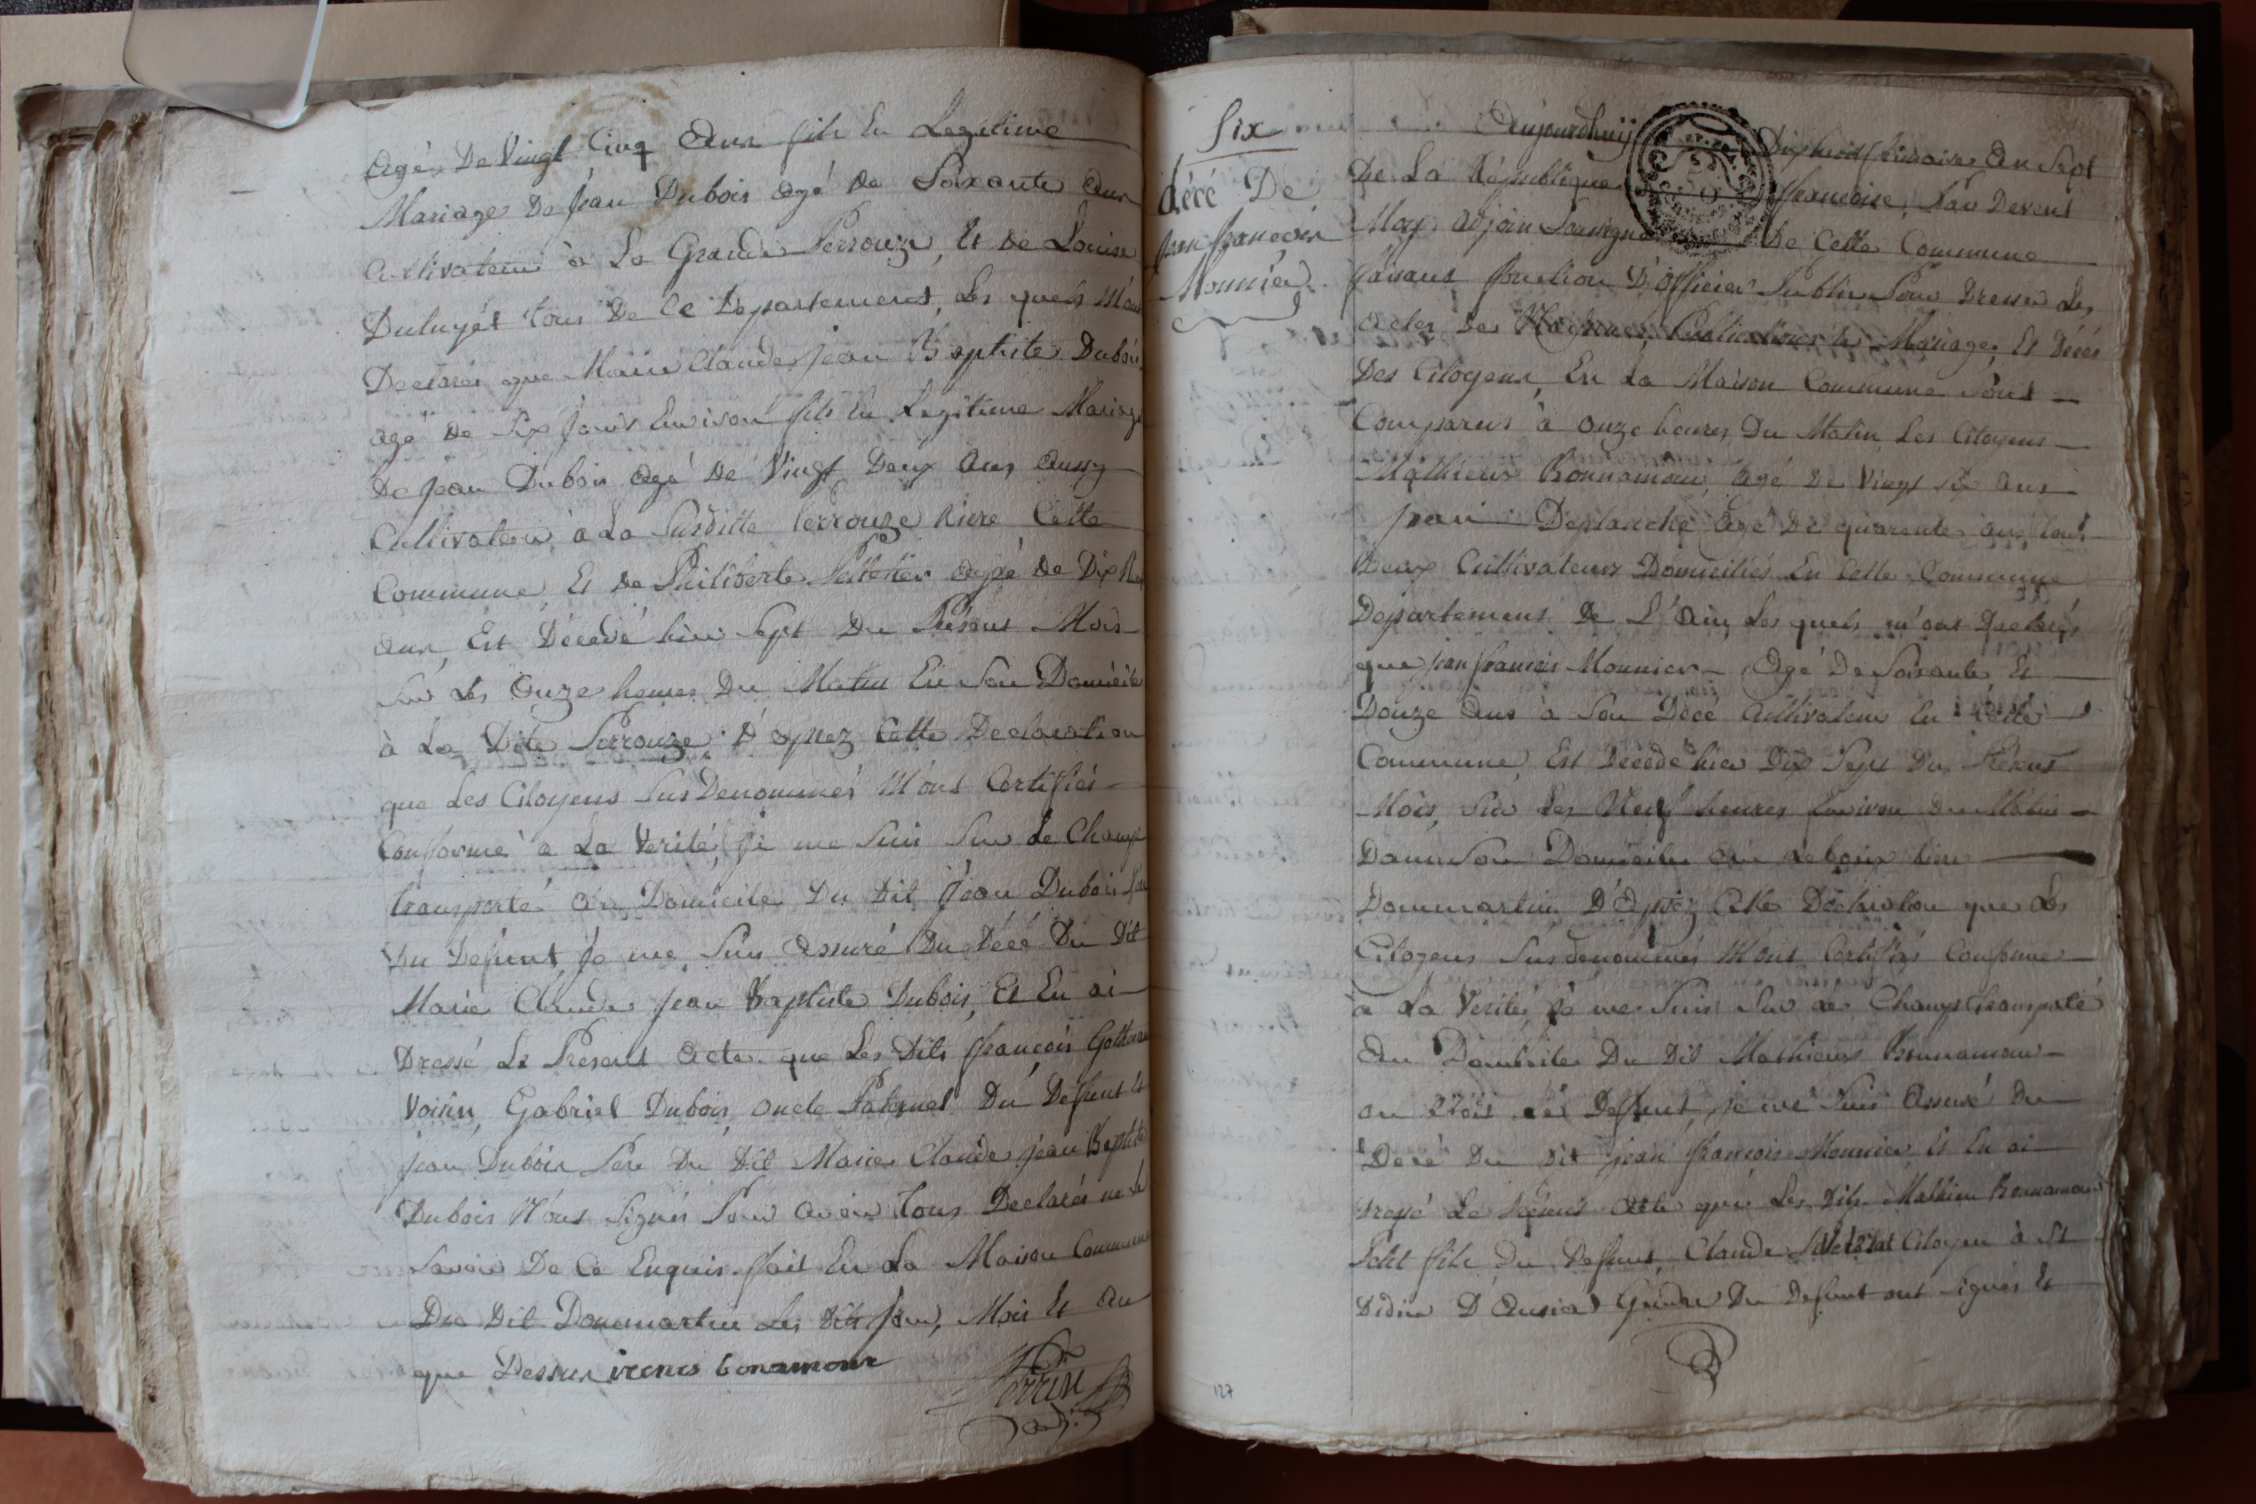 agé De Vingt Cinq Ans fils En Legitime
Mariage De Jean Dubois agé de Soixante Ans
Cultivateur à La Grande Perrouze, Et de Louise
tous De Ce Departement, Les quels M'ont
Declarés que Marie Claude Jean Baptiste Dubois
agé de Six Jours Environ fils En Legitime Mariage
De Jean Dubois agé de Vingt Deux Ans Aussy
Cultivateur à La Susditte Perrouze Riere Cette
Commune Et de Philiberte agé de Dix
Ans, Est Décedé hier Sept Du Présent Mois
Sur Les Onze heures Du Matin En Son Domicile
à La Dite Perrouze, D'aprez Cette Declaration
que Les Citoyens Sus Denommés M'ont Certifiés
Conforme à La Verité, Je me Suis Sur Le Champ
transporté Au Domicile Du Dit Jean Dubois
Du Defunt Je me Suis Assuré Du Décé Du Dit
Marie Claude Jean Baptiste Dubois, Et En ai
Dressé Le Présent Acte que Les Dits François
Voisin, Gabriel Dubois oncle Paternel Du Defunt Et
Jean Dubois Pere Du Dit Marie Claude Jean Baptiste
Dubois N'ont Signés Pour Avoir Tous Declarés ne Le
Savoir De Ce Enquis. fait En La Maison Commune
Du Dit Dommartin Les Dits Jour, Mois Et An
que Dessus irenes bonamour
Perrin
adj.
Six
décé De
Jean francois
Monnier
Aujourdhuij Dixhuit frimaire An Sept
De La République francoise, Pardevent
Moy adjoin Soussigné De Cette Commune
faisant fonction D'Officier Public Pour Dresser Les
actes des Naissances, Publications de Mariage, Et Décés
Des Citoyens, En La Maison Commune Sont
Comparus à onze heures Du Matin Les Citoyens
Mathieu Bonnamour, agé de Vingt six ans
Jean Deplanche agé De quarente ans, tous
Deux Cultivateurs Domiciliés En Cette Commune
Departement De L'Ain, Les quels m'ont Declarés
que jean francois Monnier Agé De Soixante Et
Douze ans à Son Décé Cultivateur En Cette
Commune, Est Décédé hier Dix Sept Du Présent
Mois, Sur Les Neuf heures Environ du Matin
Dans Son Domicile
Dommartin, D'Aprez Cette Déclaration que Les
Citoyens Susdenommés M'ont Certifiés Conforme
à La Verité, Je me Suis Sur Le Champ transporté
Au Domicile Du Dit Mathieu Bonnamour
Defunt, je me Suis Assuré du
Décé Du Dit jean francois Monnier Et En ai
Dressé Le Présent Acte que Les Dits Mathieu Bonnamour
Petit fils Du Defunt, Claude Citoyen à St
Didier D'Aussiat Gendre Du Defunt ont Signés Et
127